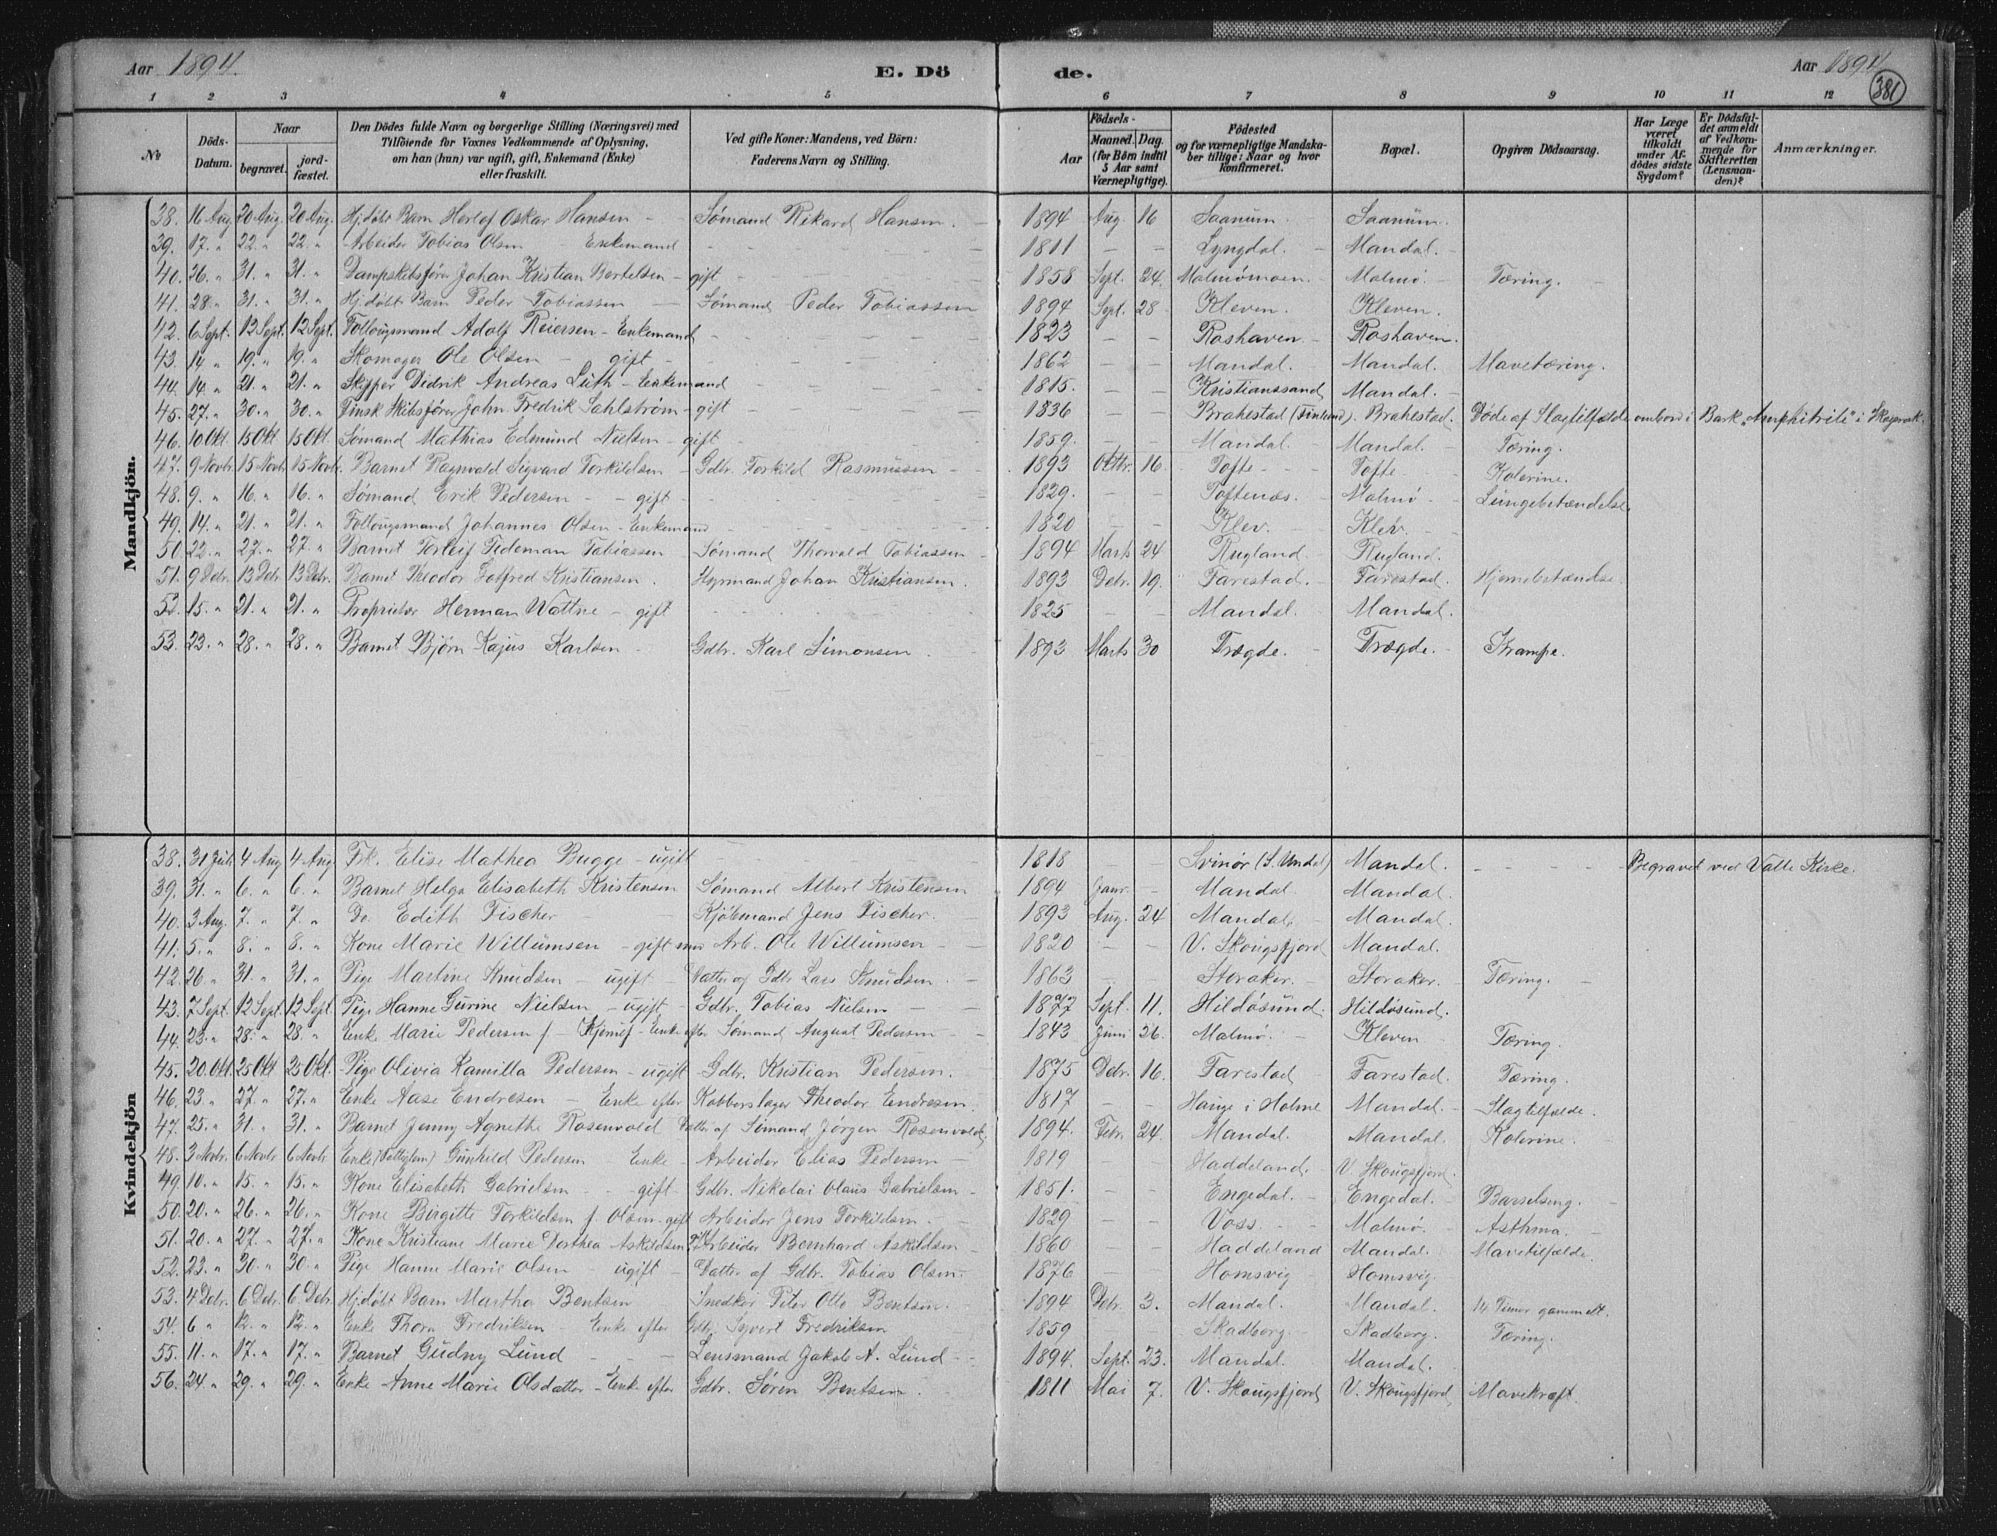 Aar 1894. E. Dö de. Aar 1894 381
1 2 3 4 5 6 7 8 9 10 11 12
No Döds-Datum. Naar begravet. jord-fæstet. Den Dödes fulde Navn og borgerlige Stilling (Næringsvei) med Tilföiende for Voxnes Vedkommende af Oplysning, om han (hun) var ugift, gift, Enkemand (Enke) eller fraskilt. Ved gifte Koner: Mandens, ved Börn: Faderens Navn og Stilling. Födsels- Aar Maaned. Dag. (for Börn indtil 5 Aar samt Værnepligtige). Födested og for værnepligtige Mandskaber tillige: Naar og hvor Konfirmeret. Bopæl. Opgiven Dödsaarsag. Har Læge været tilkaldt under Afdödes sidste Sygdom? Er Dödsfaldet anmeldt af Vedkommende for Skifteretten (Lensmanden)? Anmærkninger.
Mandkjön.
38. 16 Aug 20 Aug. 20 Aug. Hj.døbt Barn Herlof Oskar Hansen – Sømand Rikard Hansen. 1894 Aug 16 Saanum. Saanum.
39. 17. " 22. " 22. " Arbeider Tobias Olsen – Enkemand 1811 Lyngdal. Mandal.
40. 26. " 31. " 31. " Dampskibsfører Johan Kristian Bertelsen – gift 1858 Sept. 24. Malmømoen Malmø. Tæring.
41. 28. " 31. " 31. " Hj.døbt Barn Peder Tobiassen – Sømand Peder Tobiassen 1894 Sept. 28 Kleven. Kleven.
42. 6 Sept. 12 Sept. 12 Sept. Follougsmand Adolf Reiersen – Enkemand 1823 Roshaven. Roshaven.
43. 14 " 19. " 19. " Skomager Ole Olsen – gift 1862 Mandal. Mandal. Mavetæring.
44. 14 " 21. " 21. " Skipper Didrik Andreas Lüth – Enkemand 1815. Kristianssand Mandal.
45. 27. " 30. " 30. " Finsk Skibsfører John Fredrik Sahlstrøm – gift 1836 Brahestad (Finland). Brahestad. Døde af Slagtilfælde ombord i Bark "Amphitrite" i Skagerak.
46. 10 Okt. 15 Okt 15 Okt. Sømand Mathias Edmund Nielsen – gift 1859. Mandal. Mandal. Tæring.
47. 9 Novbr. 15 Novbr 15 Novbr. Barnet Ragnvald Sigvard Torkildsen – Gdbr. Torkild Rasmussen 1893 Oktbr. 16. Tofte Tofte Kolerine.
48. 9. " 16. " 16. " Sømand Erik Pedersen – gift 1829. Toftenæs. Malmø Lungebetændelse.
49. 14. " 21. " 21. " Follougsmand Johannes Olsen – Enkemand 1820 Klev. Klev.
50. 22. " 27. " 27. " Barnet Torleif Tedeman Tobiassen Sømand Thorvald Tobiassen 1894 Marts 24 Rugland. Rugland.
51. 9 Debr. 13 Debr 13 Debr. Barnet Theodor Gotfred Kristiansen. Hyrmand Johan Kristiansen. 1893 Debr. 19. Farestad. Farestad. Hjernebetændelse.
52. 15. " 21. " 21. " Proprietær Herman Wattne – gift 1825 Mandal. Mandal.
53. 23. " 28. " 28. " Barnet Bjørn Kajus Karlsen – Gdbr. Karl Simonsen. 1893 Marts 30 Trægde. Trægde. Krampe.
Kvindekjön
38. 31 Juli 4 Aug 4 Aug Frk. Elise Mathea Bugge – ugift 1818 Svinør (S. Undal) Mandal. Begravet ved Valle Kirke.
39. 31. " 6. " 6. " Barnet Helga Elisabeth Kristensen Sømand Albert Kristensen 1894 Janr. Mandal. Mandal.
40. 3 Aug. 7. " 7. " Do Edith Fischer Kjøbmand Jens Fischer. 1893 Aug. 24 Mandal. Mandal.
41. 5. " 8. " 8. " Kone Marie Willumsen – gift med Arb. Ole Willumsen 1820 V. Skougsfjord Mandal.
42. 26 " 31. " 31. " Pige Martine Knudsen – ugift Datter af Gdbr. Lars Knudsen. 1863 Storaker. Storaker. Tæring.
43. 7 Sept. 12 Sept. 12 Sept. Pige Hanne Gurine Nielsen – ugift Gdbr. Tobias Nielsen 1877 Sept. 11. Hildøsund. Hildøsund.
44. 23. " 28. " 28. " Enke Marie Pedersen f. – Enke efter Sømand August Pedersen 1843 Juni 26. Malmø. Kleven Tæring.
45. 20. Okt. 25 Okt 25 Okt. Pige Olivia Kamilla Pedersen – ugift Gdbr. Kristian Pedersen. 1875 Debr. 16. Farestad Farestad. Tæring.
46. 23. " 27. " 27. " Enke Aase Endresen – Enke efter Kobberslager Theodor Endresen. 1817 Hauge i Holme Mandal. Slagtilfælde.
47. 25. " 31. " 31. " Barnet Jenny Agnethe Rosenvold Datter af Sømand Jørgen Rosenvold. 1894. Febr. 24. Mandal. Mandal. Kolerine.
48. 3 Novbr. 6 Novbr 6 Novbr Enke (Fattiglem) Gunhild Pedersen Enke – Arbeider Elias Pedersen 1819 Haddeland. V. Skougsfjord.
49. 10. " 15. " 15. " Kone Elisabeth Gabrielsen – gift – Gdbr. Nikolai Olaus Gabrielsen 1851. Engedal. Engedal. Barselseng.
50. 20. " 26. " 26. " Kone Birgitte Torkildsen f. Olsen – gift Arbeider Jens Torkildsen. 1829 Voss. Malmø. Asthma.
51. 20. " 27. " 27. " Kone Kristiane Marie Dorthea Askildsen Arbeider Bernhard Askildsen 1860 Haddeland Mandal. Mavetilfælde.
52. 23. " 30. " 30. " Pige Hanne Marie Olsen – ugift – Datter af Gdbr. Tobias Olsen. 1876 Homsvig Homsvig
53. 4 Debr. 6 Debr. 6 Debr Hj.døbt Barn Martha Bentsen Snedker Peter Otto Bentsen. 1894 Debr. 3. Mandal. Mandal. 14 Timer gammelt.
54. 6 " 12. " 12. " Enke Thora Fredriksen – Enke efter Gdbr. Syvert Fredriksen 1859 Skadberg. Skadberg. Tæring.
55. 11. " 17. " 17. " Barnet Gudny Lund – Lensmand Jakob A. Lund 1894. Sept. 23. Mandal. Mandal.
56. 24. " 29. " 29. " Enke Anne Marie Olsdatter – Enke efter Gdbr. Søren Bentsen. 1811 Mai 7. V. Skougsfjord V. Skougsfjord Mavekræft.